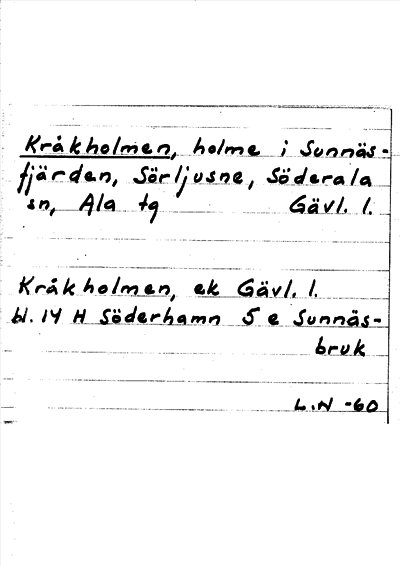 Kråkholmen, holme i Sunnäs-
fjärden, Sörljusne, Söderala
sn, Ala tg Gävl. l.
Kråkholmen, ek Gävl. l.
bl. 14 H Söderhamn 5 e Sunnäs-
bruk
L.N -60